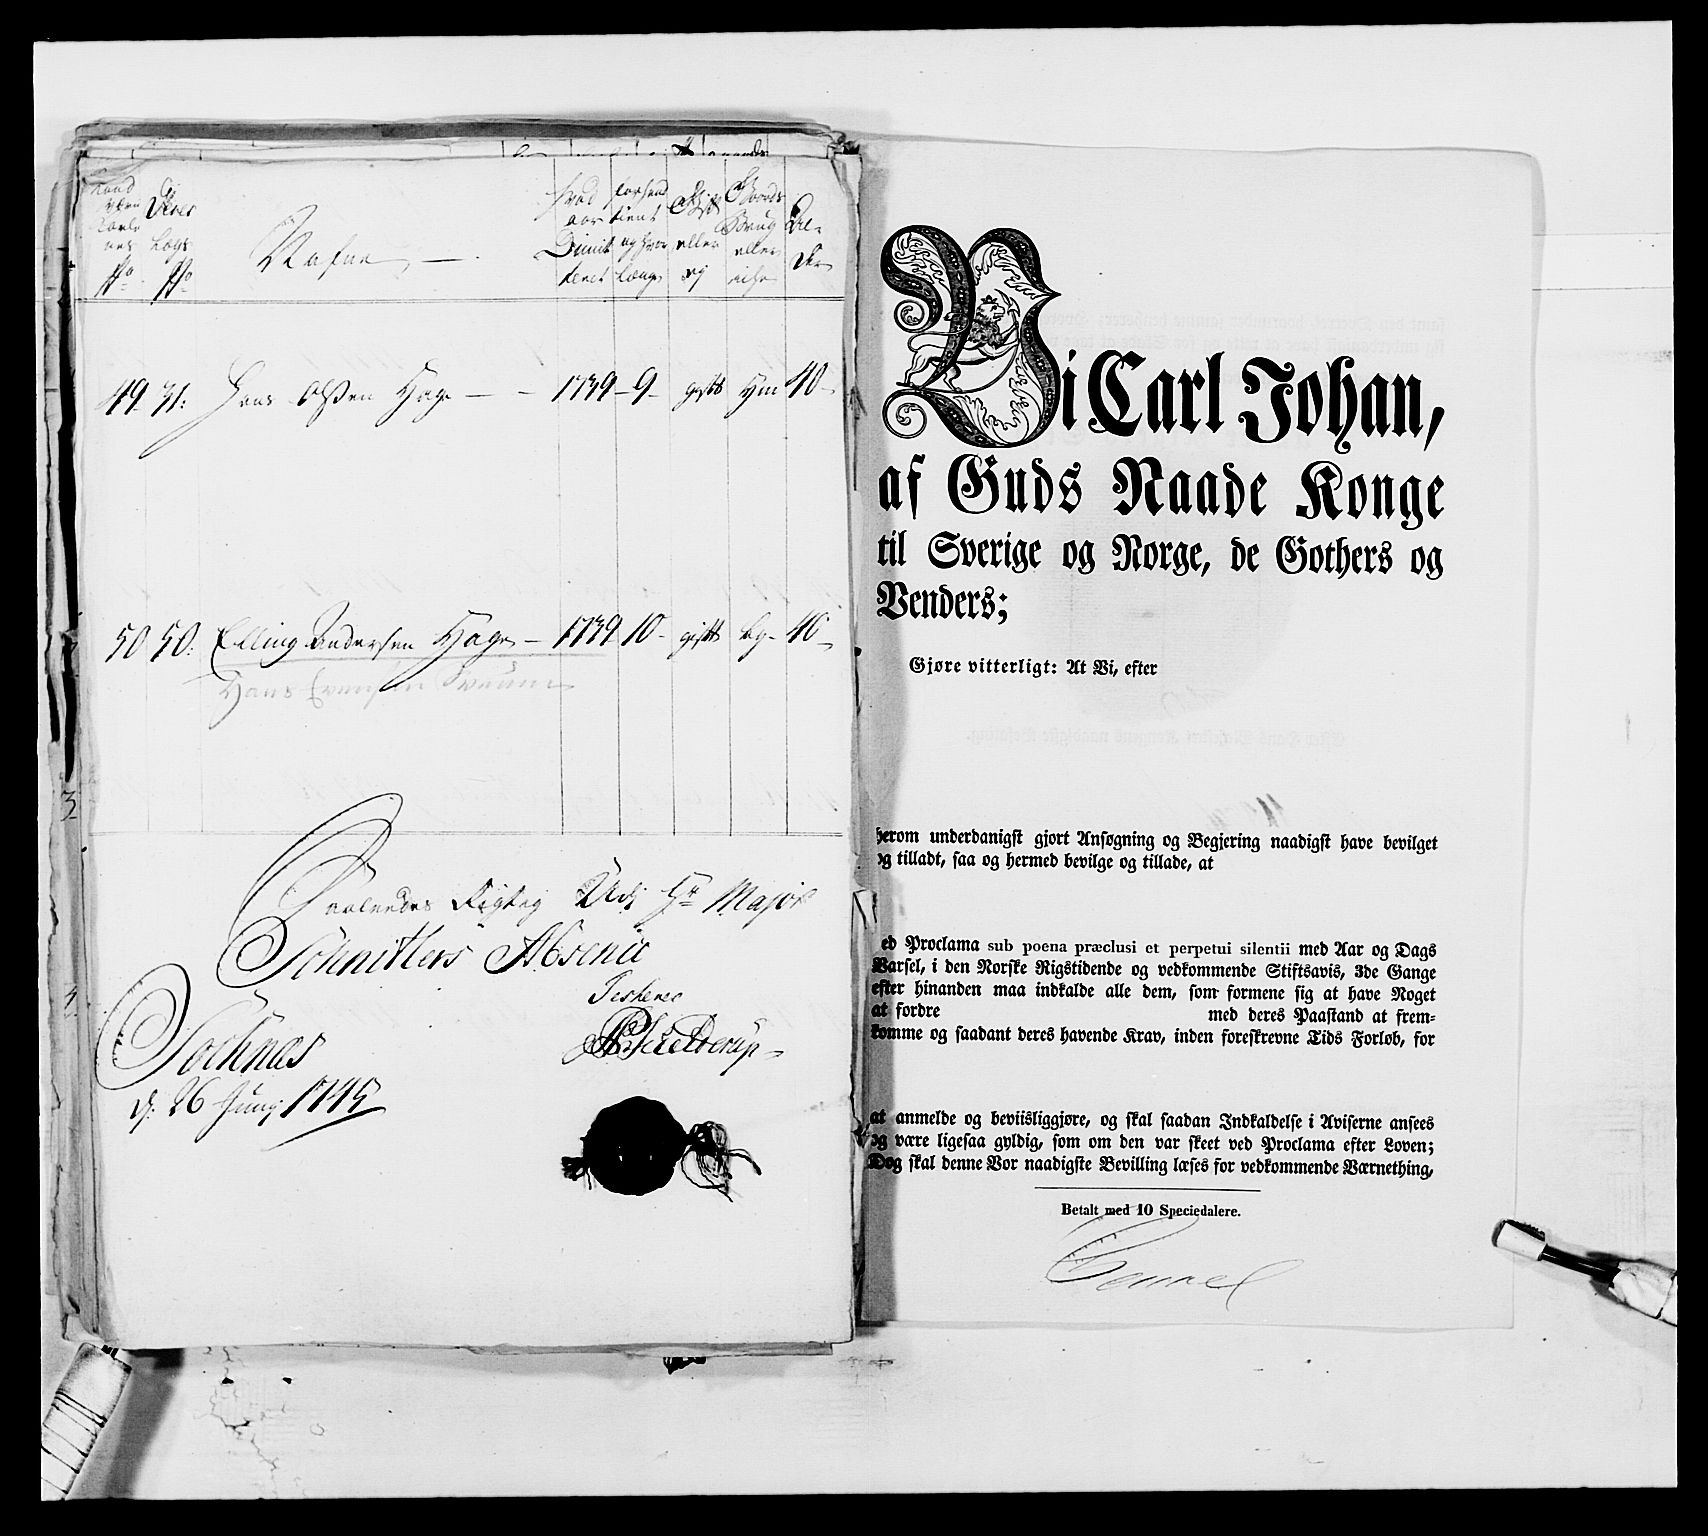 Deres
Lægs
No
No
Nafne
Hvad
aar
Dimit
teret
og hvor
længe
Gift
eller
ej
Gaards
Brug
eller
Al-
der
49. 31: Hans Olsen Hage — — 1739 – 9 – gift Hm 40 –
50 50: Elling Andersen Hage – 1739 10 – gift by – 40 –
Hans Evensen
Saaledes Rigtig Udj Hr Major
Schnitlers Absence
Testerer
Sochnæs
d. 26 Junij 1745
Vi Carl Johan,
af Guds Naade Konge
til Sverige og Norge, de Gothers og
Venders;
Gjøre vitterligt: At Vi, efter
herom underdanigst gjort Ansøgning og Begjering naadigst have bevilget
og tilladt, saa og hermed bevilge og tillade, at
ved Proclama sub poena præclusi et perpetui silentii med Aar og Dags
Varsel, i den Norske Rigstidende og vedkommende Stiftsavis, 3de Gange
efter hinanden maa indkalde alle dem, som formene sig at have Noget
at fordre med deres Paastand at frem-
komme og saadant deres havende Krav, inden foreskrevne Tids Forløb, for
at anmelde og beviisliggjøre, og skal saadan Indkaldelse i Aviserne ansees
og være ligesaa gyldig, som om den var skeet ved Proclama efter Loven;
Dog skal denne Vor naadigste Bevilling læses for vedkommende Værnething,
Betalt med 10 Speciedalere.